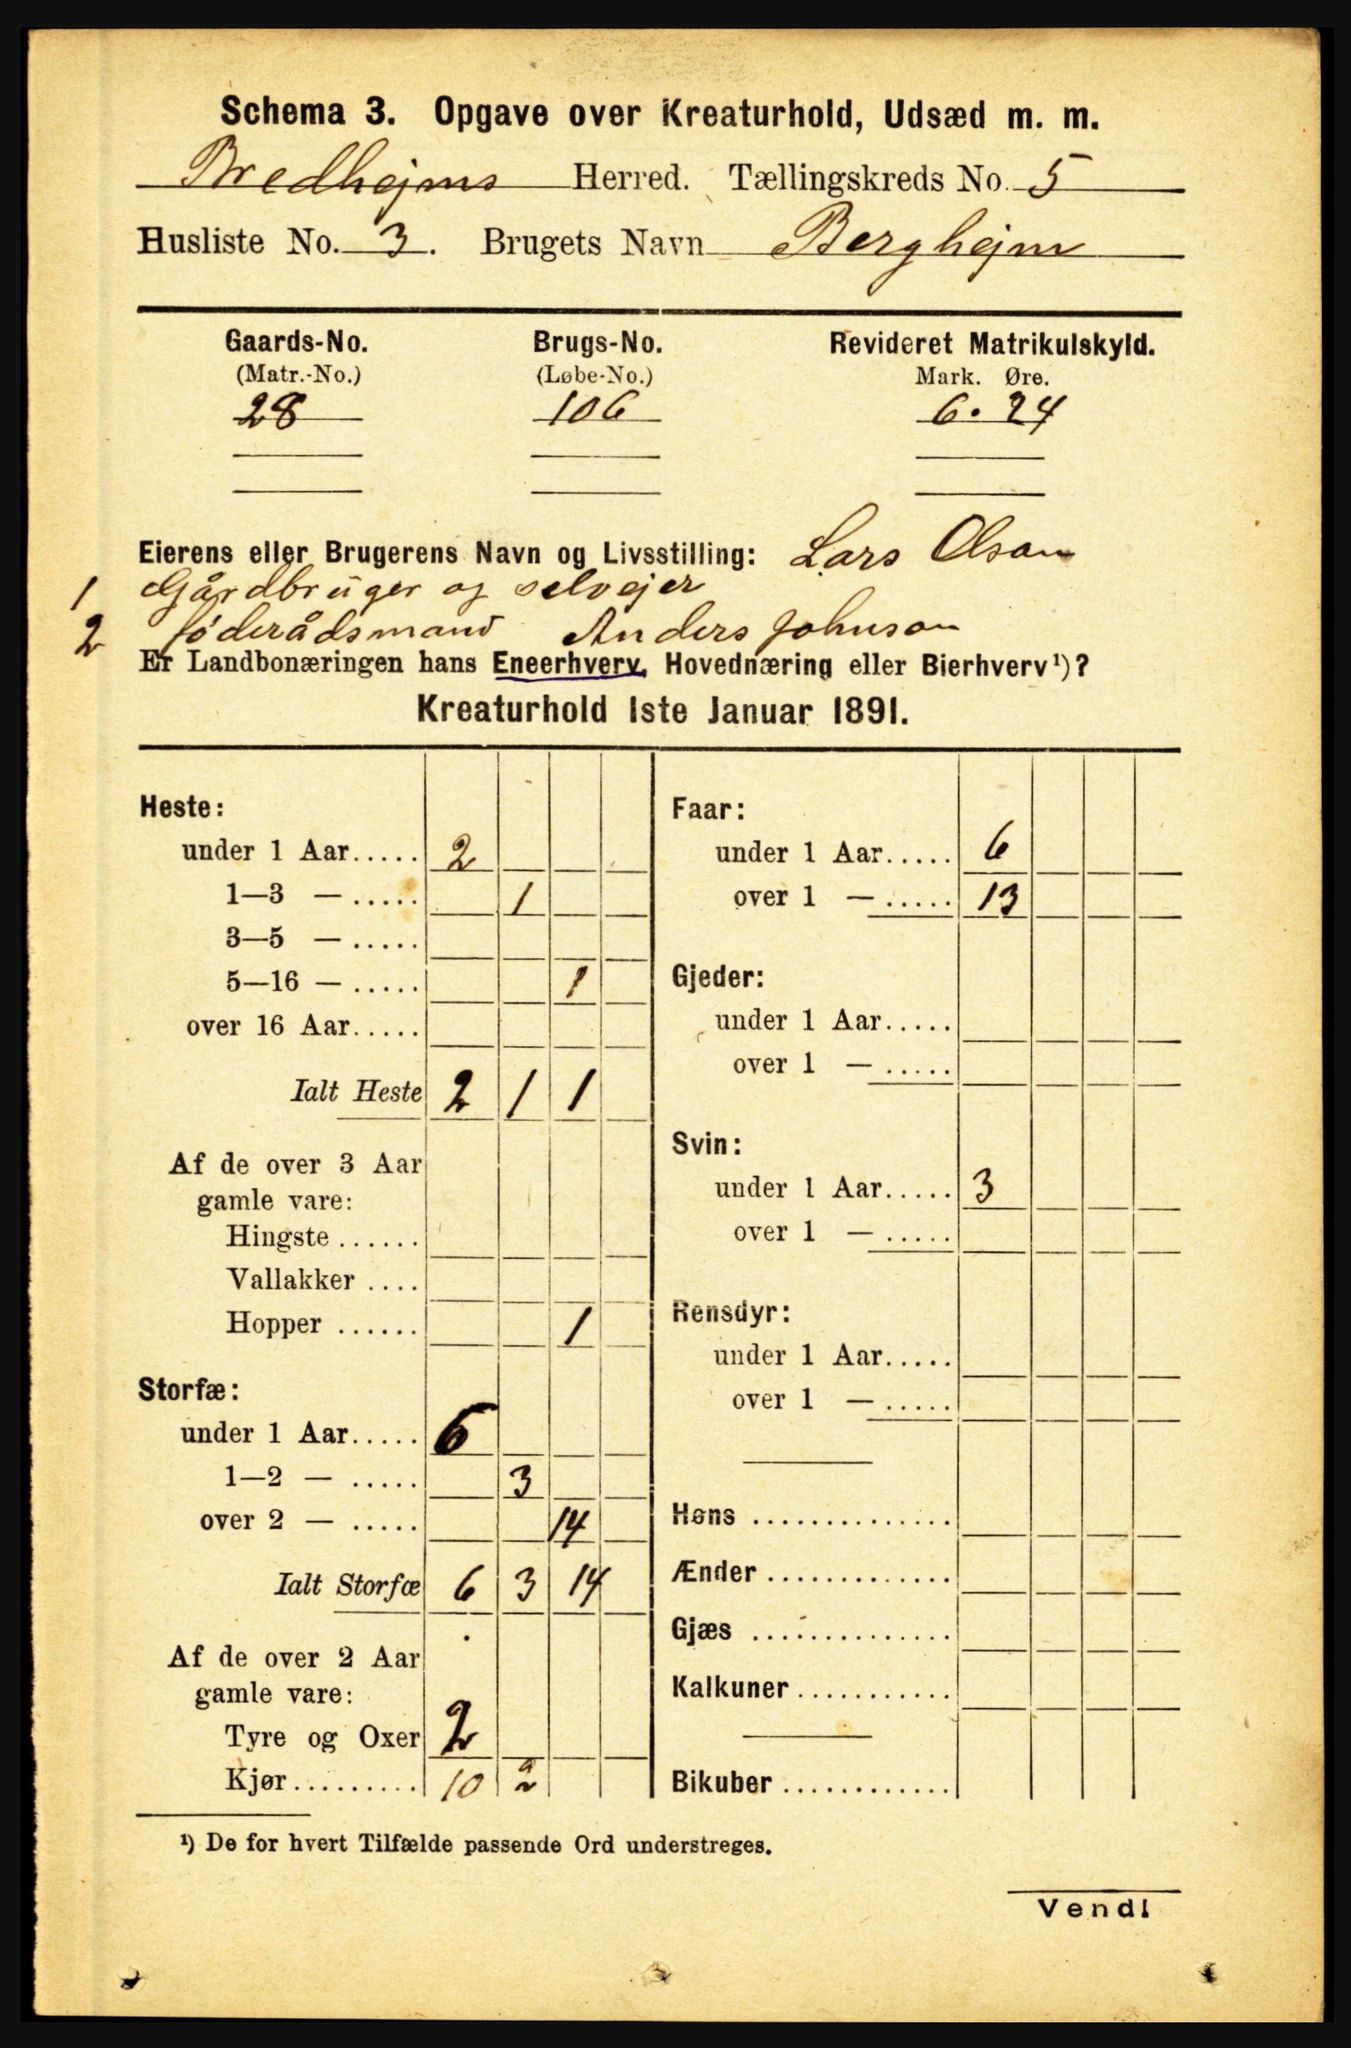 Schema 3. Opgave over Kreaturhold, Udsæd m. m.
Bredhejms Herred. Tællingskreds No. 5
Husliste No. 3. Brugets Navn Berghejm
Gaards-No. Brugs-No. Revideret Matrikulskyld.
(Matr.-No.) (Løbe-No.) Mark. Øre.
28 106 6.24
Eierens eller Brugerens Navn og Livsstilling: Lars Olson
1 Gårdbruger og selvejer
2 föderådsmand Anders Johnson
Er Landbonæringen hans Eneerhverv, Hovednæring eller Bierhverv¹)?
Kreaturhold 1ste Januar 1891.
Heste:
under 1 Aar..... 2
1—3 — ..... 1
3—5 — .....
5—16 — ..... 1
over 16 Aar.....
Ialt Heste 2 1 1
Af de over 3 Aar
gamle vare:
Hingste ......
Vallakker ....
Hopper ...... 1
Storfæ:
under 1 Aar..... 6
1—2 — ..... 3
over 2 — ..... 14
Ialt Storfæ 6 3 14
Af de over 2 Aar
gamle vare:
Tyre og Oxer 2
Kjør......... 10 2
Faar:
under 1 Aar..... 6
over 1 — ..... 13
Gjeder:
under 1 Aar.....
over 1 — .....
Svin:
under 1 Aar..... 3
over 1 — .....
Rensdyr:
under 1 Aar.....
over 1 — .....
Høns ..............
Ænder .............
Gjæs ..............
Kalkuner...........
Bikuber .............
¹) De for hvert Tilfælde passende Ord understreges.
Vend!